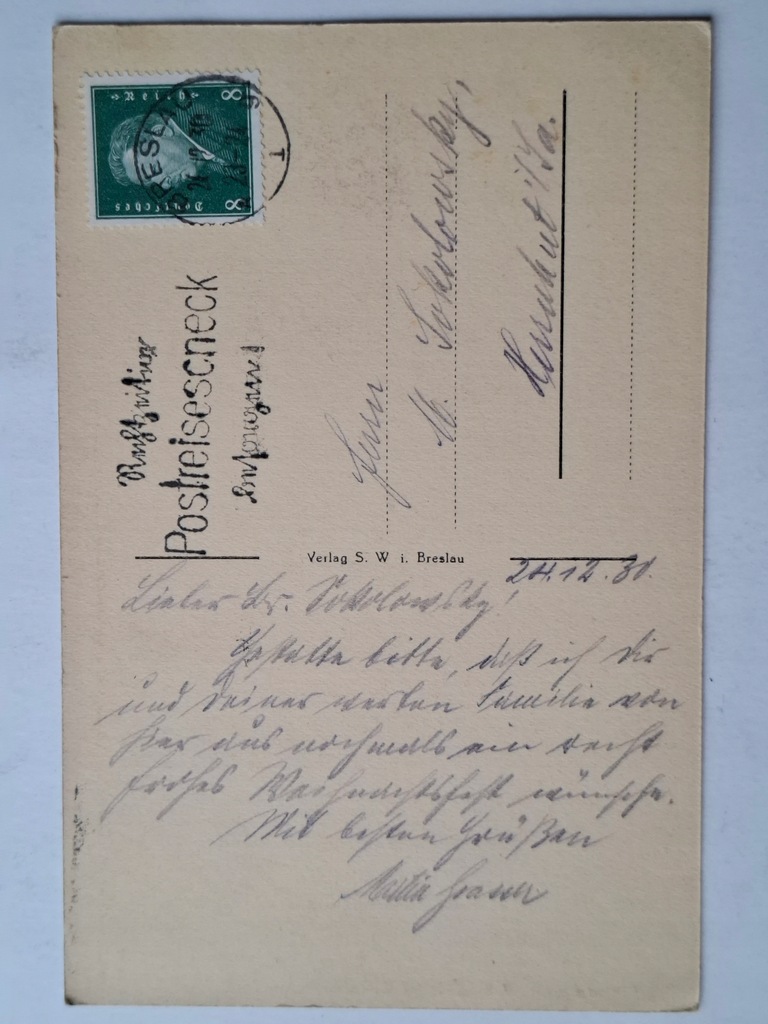 Deutsches Reich
8 8
BRESLAU
Rechtzeitig
Postreisescheck
besorgen!
Herrn
W. Sokolowsky,
Herrnhut i/Sa.
Verlag S. W i. Breslau
24.12.30.
Lieber Br. Sokolowsky!
Gestatte bitte, daß ich Dir
und Deiner werten Familie von
hier aus nochmals ein recht
frohes Weihnachtsfest wünsche.
Mit besten Grüßen
Martin